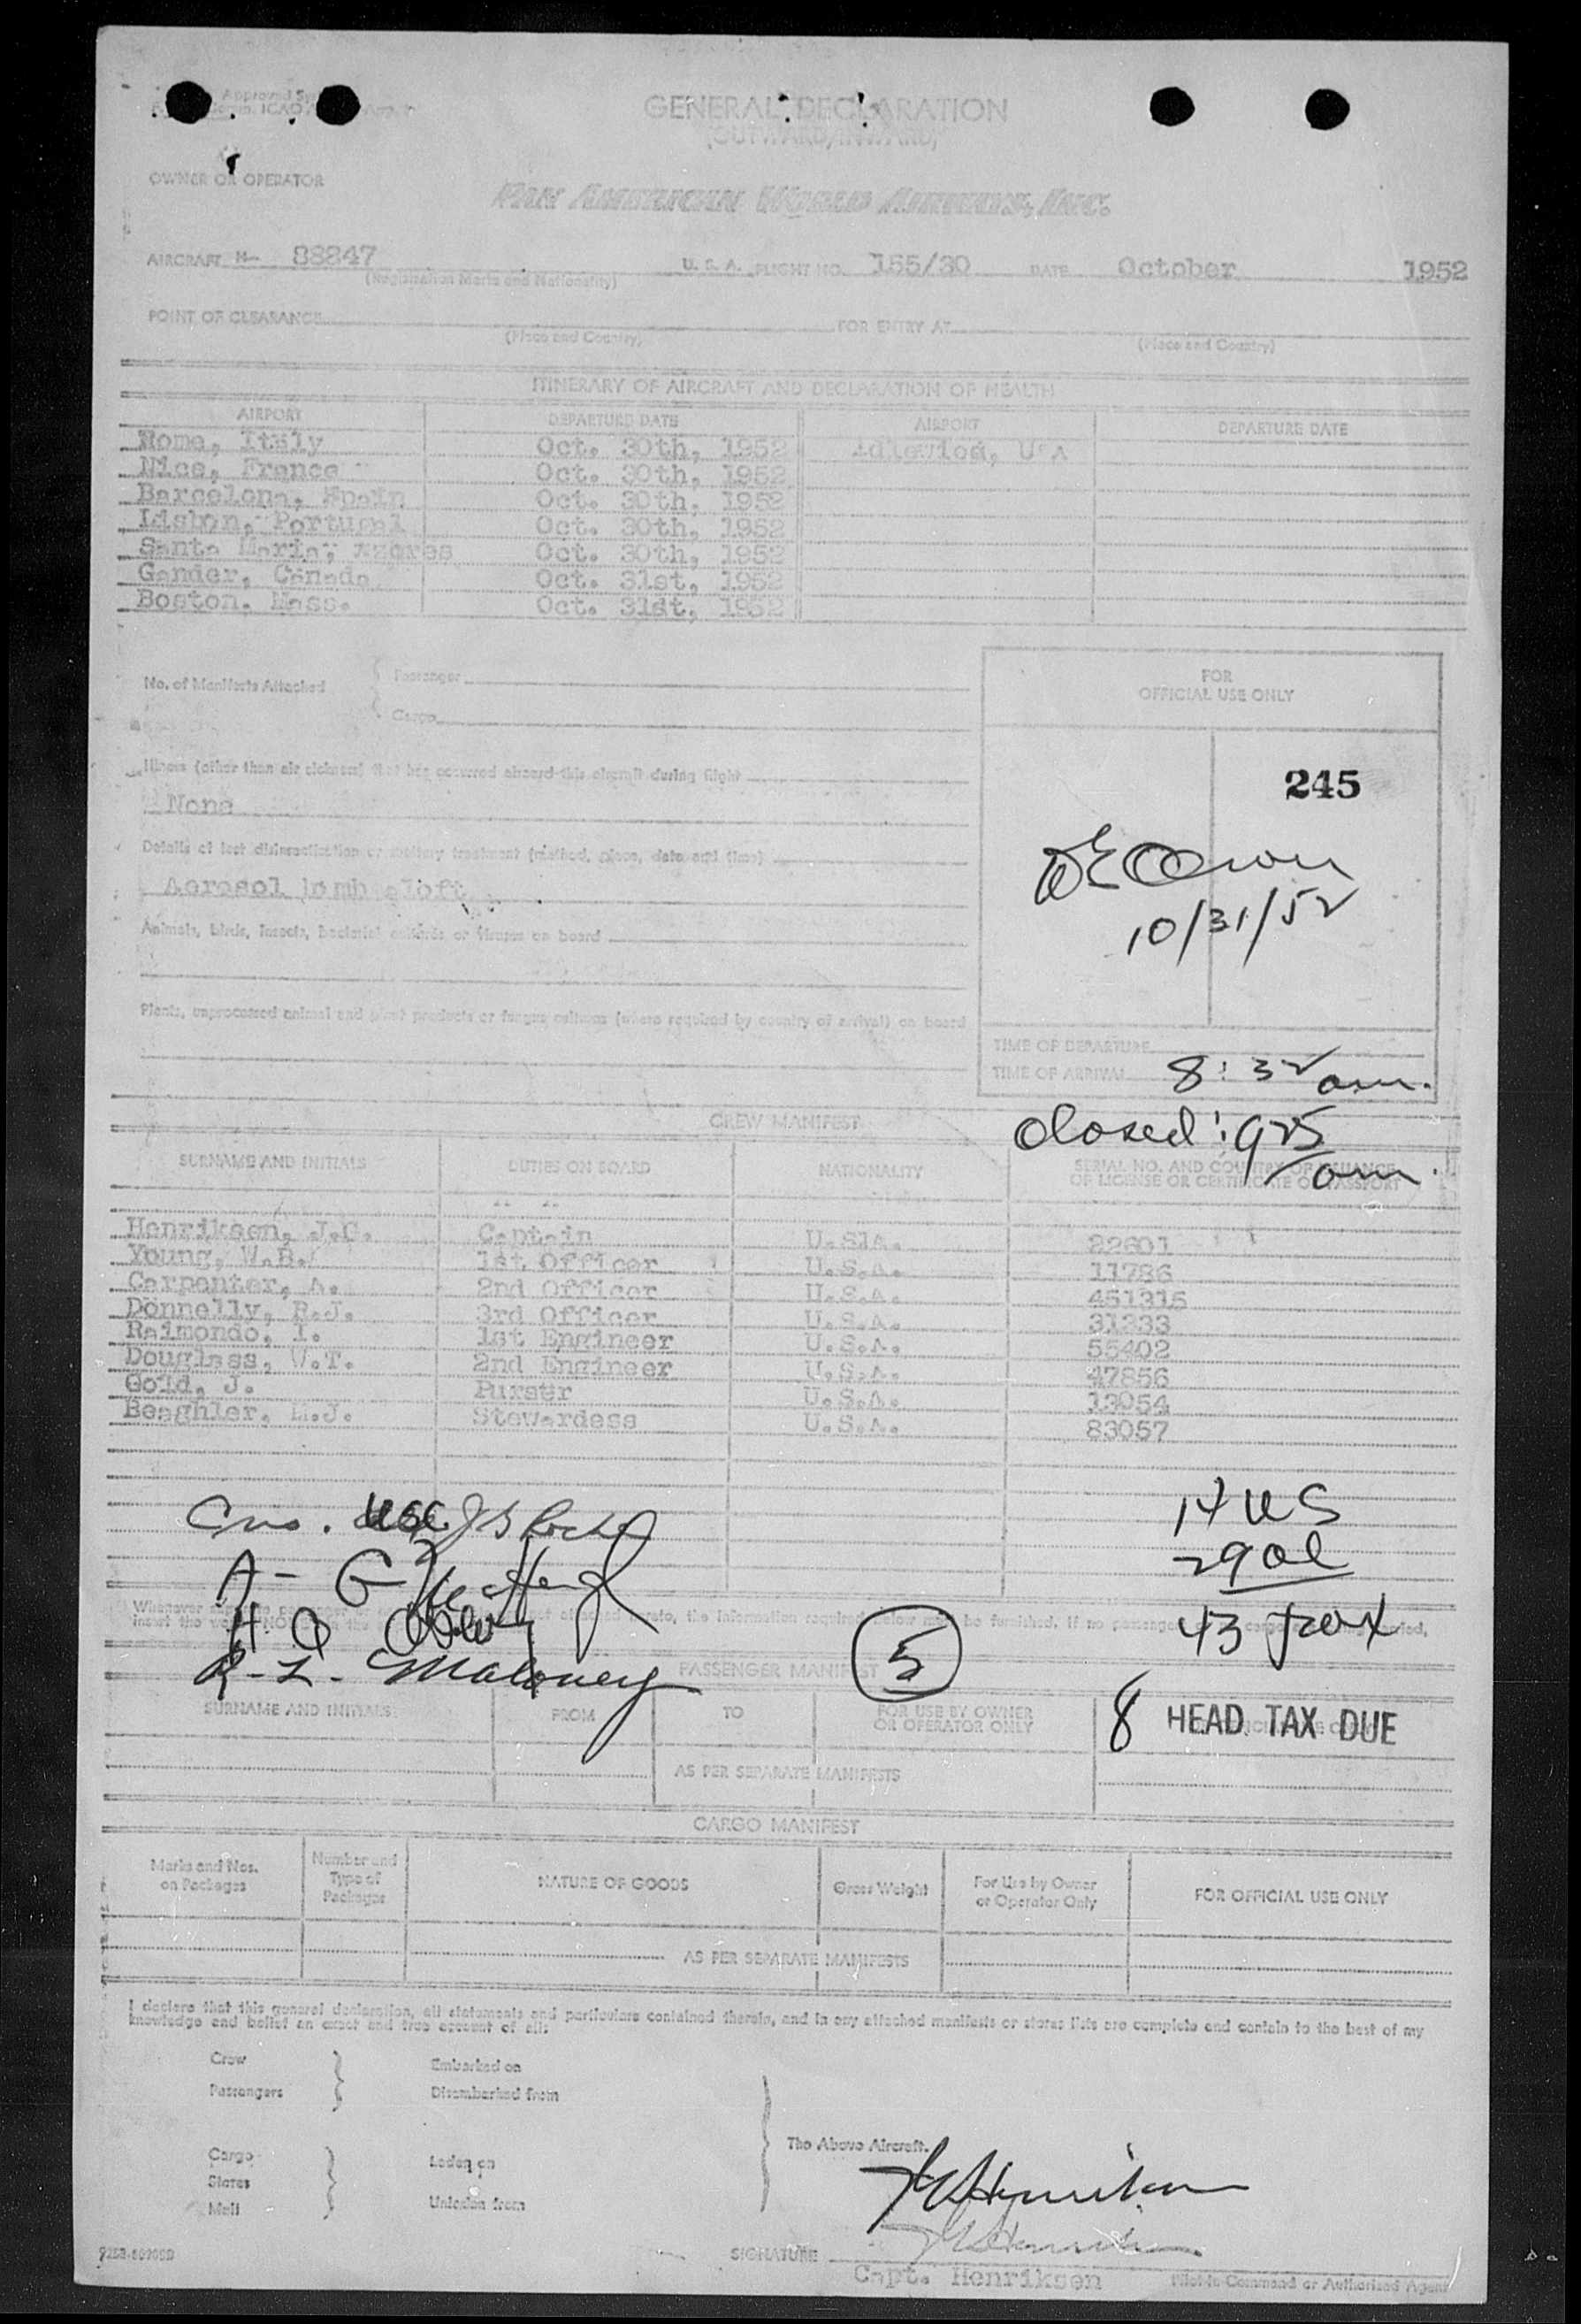 Approved
ICAO
GENERAL DECLARATION
(OUTWARD/INWARD)
OWNER OR OPERATOR
PAN AMERICAN WORLD AIRWAYS, INC.
AIRCRAFT N- 88847 U.S.A. FLIGHT NO. 155/30 DATE October 1952
(Registration Marks and Nationality)
POINT OF CLEARANCE FOR ENTRY AT
(Place and Country) (Place and Country)
ITINERARY OF AIRCRAFT AND DECLARATION OF HEALTH
AIRPORT DEPARTURE DATE AIRPORT DEPARTURE DATE
Rome, Italy Oct. 30th, 1952 Idlewild, USA
Nice, France Oct. 30th, 1952
Barcelona, Spain Oct. 30th, 1952
Lisbon, Portugal Oct. 30th, 1952
Santa Maria, Azores Oct. 30th, 1952
Gander, Canada Oct. 31st, 1952
Boston, Mass. Oct. 31st, 1952
No. of Manifests Attached
Passenger
Cargo
FOR
OFFICIAL USE ONLY
245
10/31/52
Illness (other than air sickness) that has occurred aboard this aircraft during flight
None
Details of last disinsectisation or sanitary treatment (method, place, date and time)
Aerosol bomb aloft
Animals, birds, insects, bacterial cultures or viruses on board
Plants, unprocessed animal and plant products or fungus cultures (where required by country of arrival) on board
TIME OF DEPARTURE
TIME OF ARRIVAL 8:32 am.
Closed: 925 am.
CREW MANIFEST
SURNAME AND INITIALS DUTIES ON BOARD NATIONALITY SERIAL NO. AND COUNTRY OF ISSUANCE
OF LICENSE OR CERTIFICATE OR PASSPORT
Henriksen, J.G. Captain U.S1A. 22601
Young, W.B. 1st Officer U.S.A. 11786
Carpenter, A. 2nd Officer U.S.A. 451315
Donnelly, R.J. 3rd Officer U.S.A. 31333
Raimondo, I. 1st Engineer U.S.A. 55402
Douglass, W.T. 2nd Engineer U.S.A. 47856
Gold, J. Purser U.S.A. 13054
Beaghler, L.J. Stewardess U.S.A. 83057
14 US
29 al
43 pax
R-L- Maloney
5
PASSENGER MANIFEST
SURNAME AND INITIALS FROM TO FOR USE BY OWNER
OR OPERATOR ONLY
8 HEAD TAX DUE
AS PER SEPARATE MANIFESTS
CARGO MANIFEST
Marks and Nos.
on Packages
Number and
Type of
Packages
NATURE OF GOODS
Gross Weight
For Use by Owner
or Operator Only
FOR OFFICIAL USE ONLY
AS PER SEPARATE MANIFESTS
I declare that this general declaration, all statements and particulars contained therein, and in any attached manifests or stores lists are complete and contain to the best of my
knowledge and belief an exact and true account of all:
Crew Embarked on
Passengers Disembarked from
The Above Aircraft.
Cargo
Stores
Mail
Laden on
Unladen from
SIGNATURE
Capt. Henriksen
Pilot-in-Command or Authorized Agent